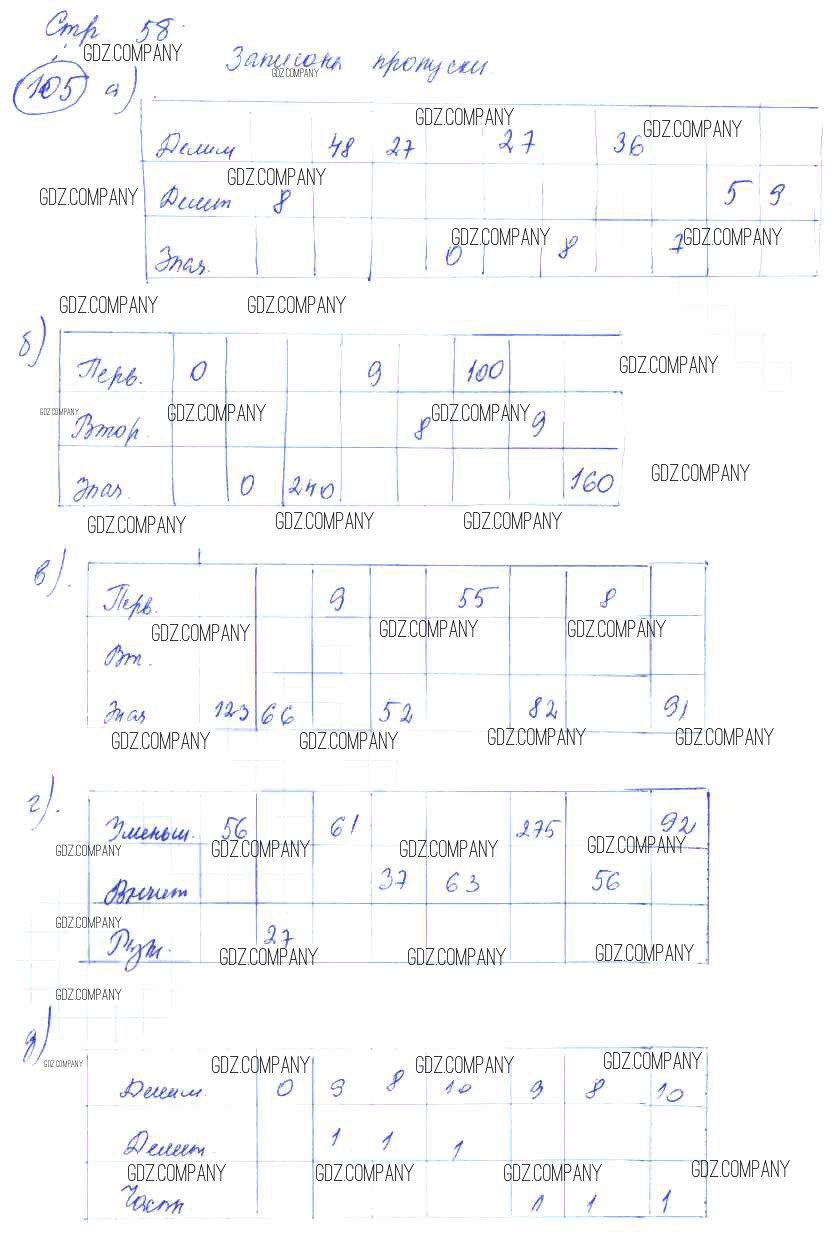 Стр 58.
GDZ.COMPANY
Записона пропуски.
GDZ.COMPANY
105 а)
GDZ.COMPANY
GDZ.COMPANY
Делим 48 27 27 36
GDZ.COMPANY
GDZ.COMPANY
Делит 8 5 9
GDZ.COMPANY GDZ.COMPANY
Знач. 0 8 7
GDZ.COMPANY GDZ.COMPANY
б)
GDZ.COMPANY
Перв. 0 9 100
GDZ.COMPANY GDZ.COMPANY GDZ.COMPANY
Втор. 8 9
GDZ.COMPANY
Знач. 0 240 160
GDZ.COMPANY GDZ.COMPANY GDZ.COMPANY
в).
Перв. 9 55 8
GDZ.COMPANY GDZ.COMPANY GDZ.COMPANY
Вт.
Знач 123 66 52 82 91
GDZ.COMPANY GDZ.COMPANY GDZ.COMPANY GDZ.COMPANY
г).
Уменьш. 56 61 275 92
GDZ.COMPANY GDZ.COMPANY GDZ.COMPANY GDZ.COMPANY
Вычит 37 63 56
GDZ.COMPANY
27
GDZ.COMPANY GDZ.COMPANY GDZ.COMPANY
GDZ.COMPANY
д)
GDZ.COMPANY GDZ.COMPANY GDZ.COMPANY GDZ.COMPANY
Делим. 0 9 8 10 9 8 10
Делит. 1 1 1
GDZ.COMPANY GDZ.COMPANY GDZ.COMPANY GDZ.COMPANY
Частн 1 1 1